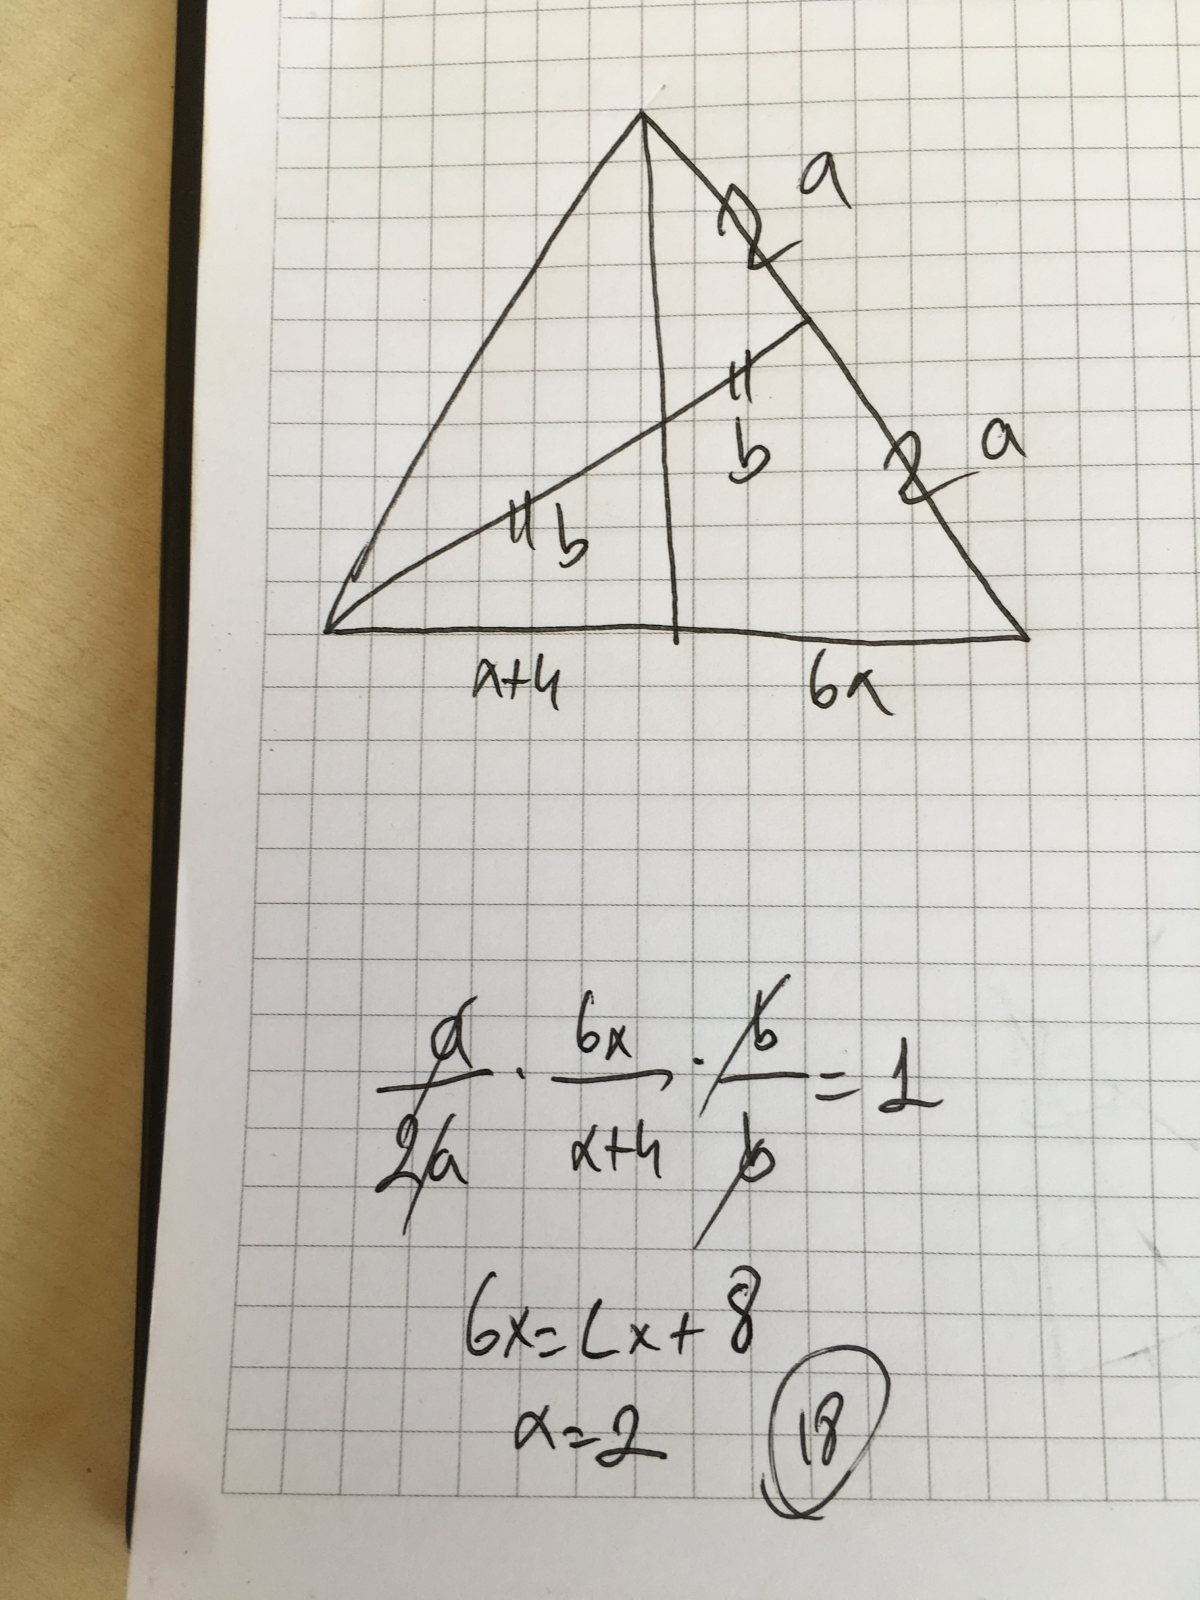 a
a
b
b
x+4
6x
a/2a · 6x/x+4 · b/b = 1
6x=2x+8
x=2
18